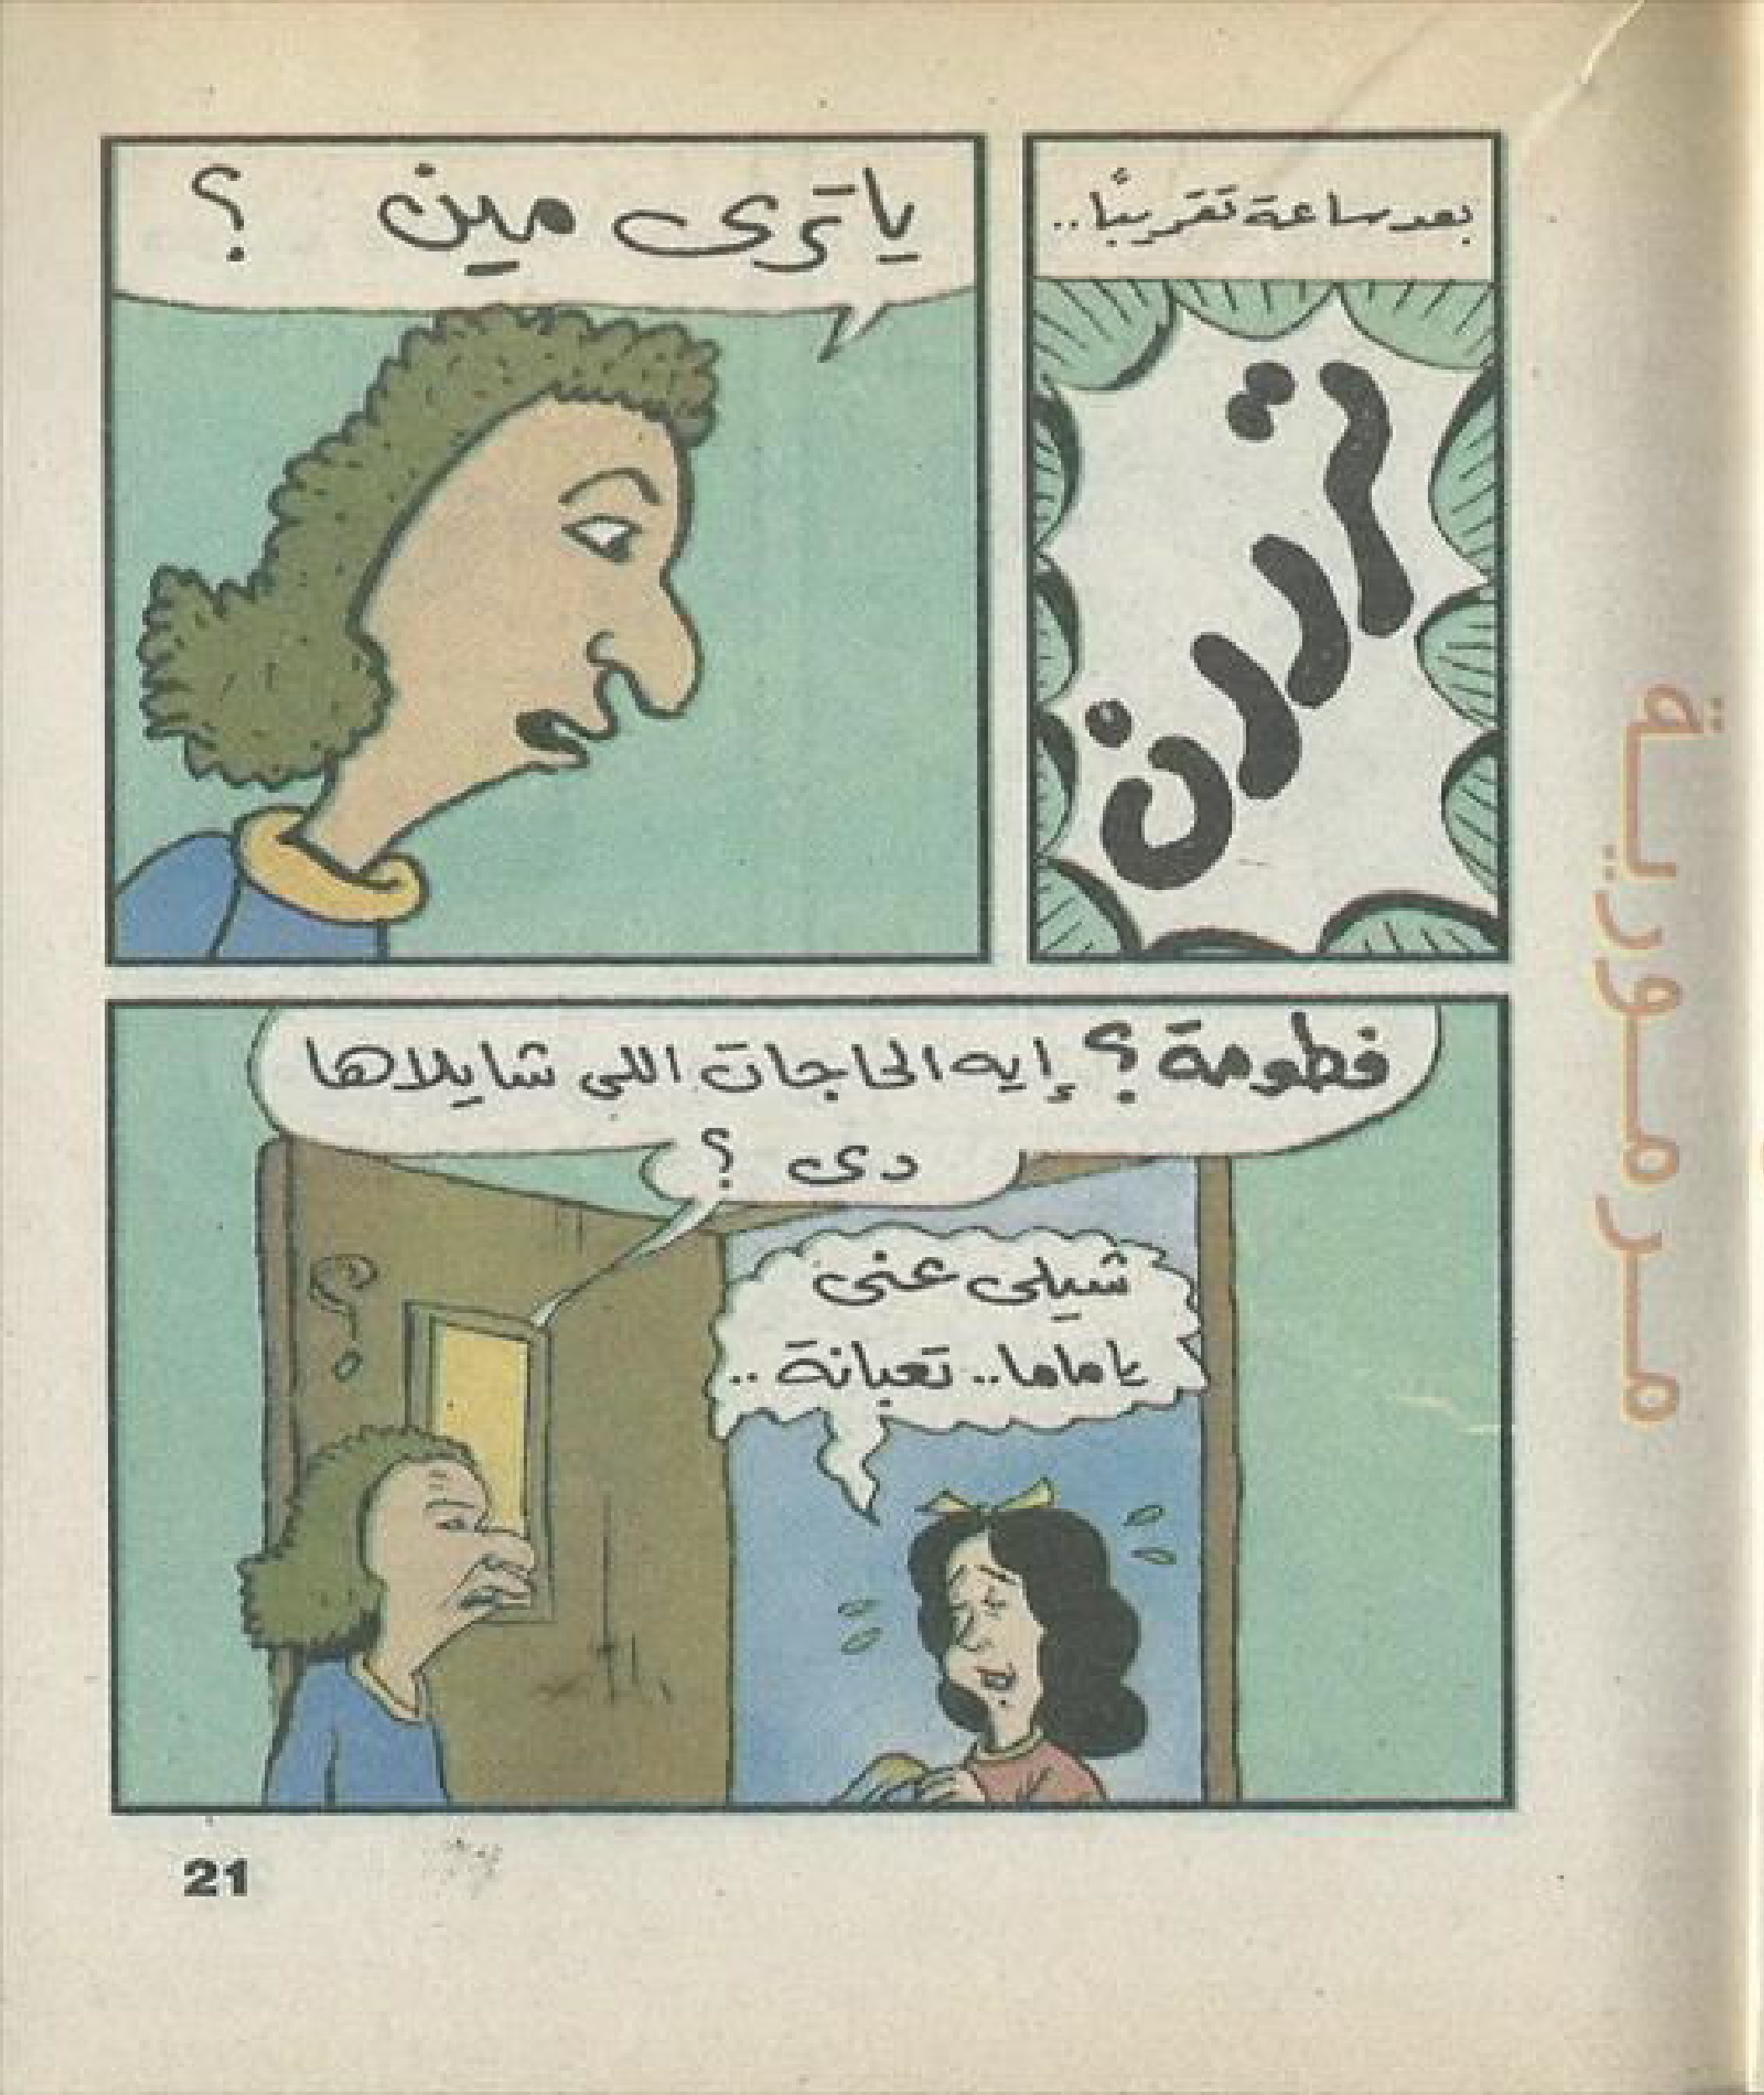 بعد ساعة تقريبًا..
تررن
ياترى مين ؟
فطومة ؟ إيه الحاجات اللى شايلاها
دى ؟
شيلى عنى
ياماما.. تعبانة ..
مرمورية
21